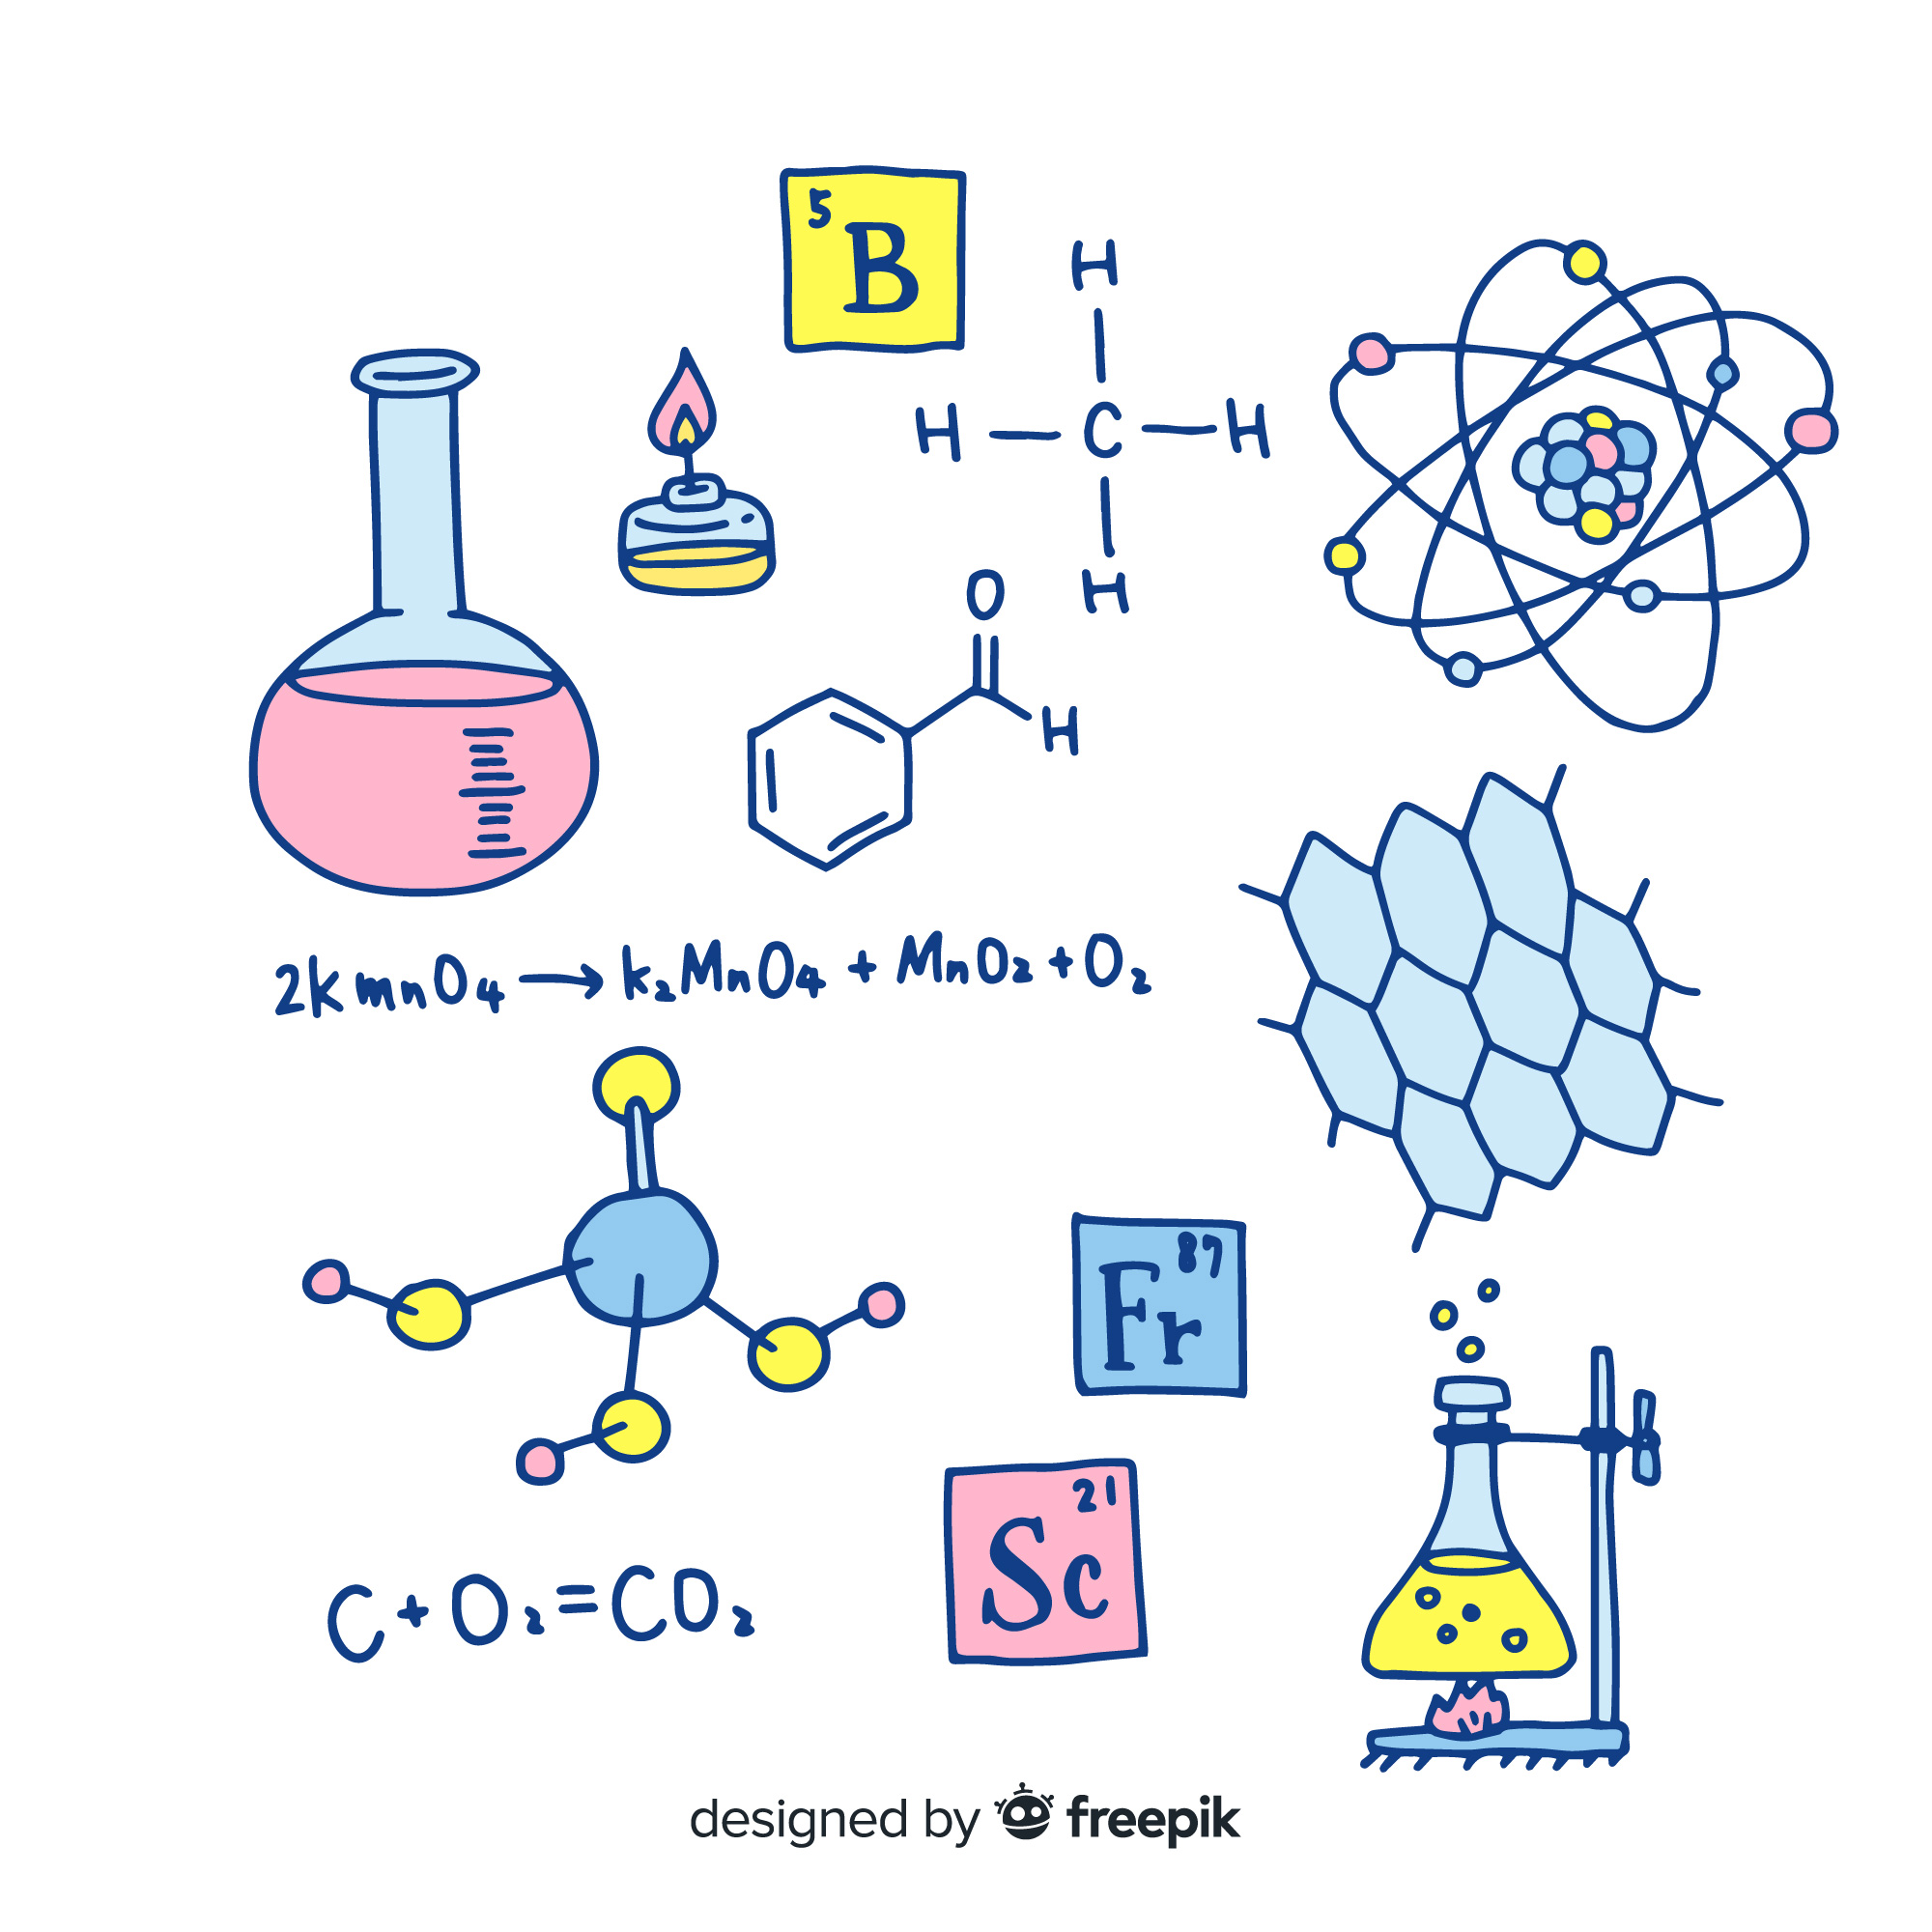 5
B
H
H C H
H
O
H
2KmnO₄ → k₂MnO₄ + MnO₂ + O₂
87
Fr
21
Sc
C + O₂ = CO₂
designed by freepik